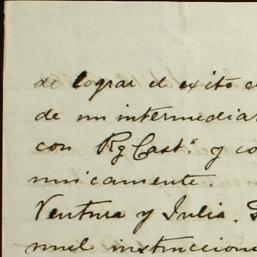 de lograr el exito e
de un intermediar
con Rg Cast.ª y co
unicamente.
Ventura y Julia. 
nuel instruccione